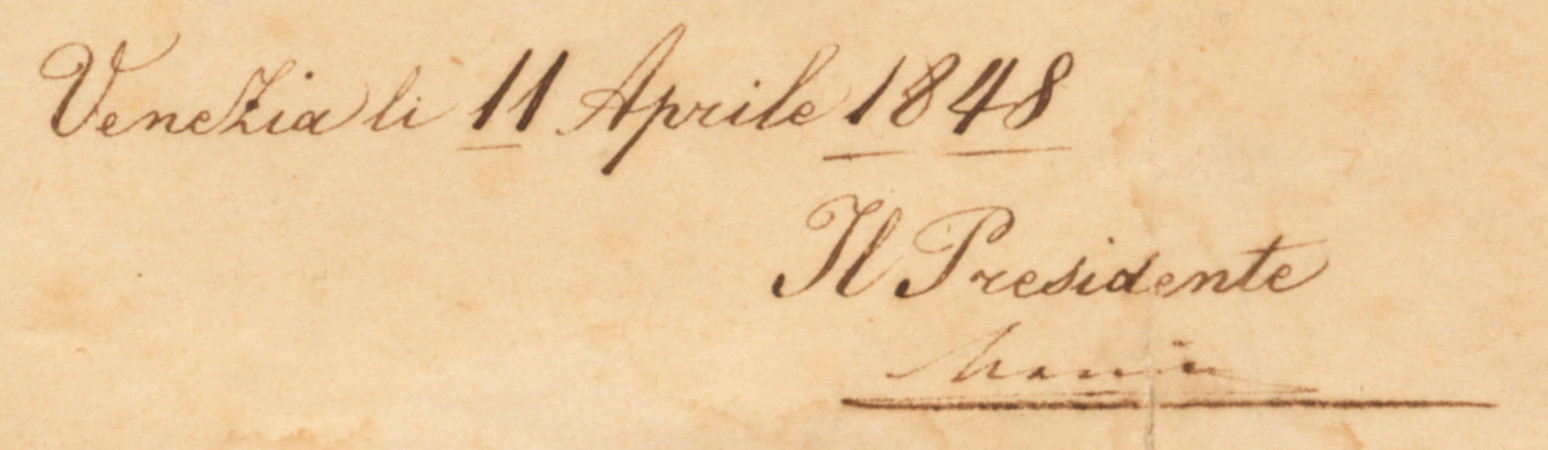 Venezia li 11 Aprile 1848
Il Presidente
Manin